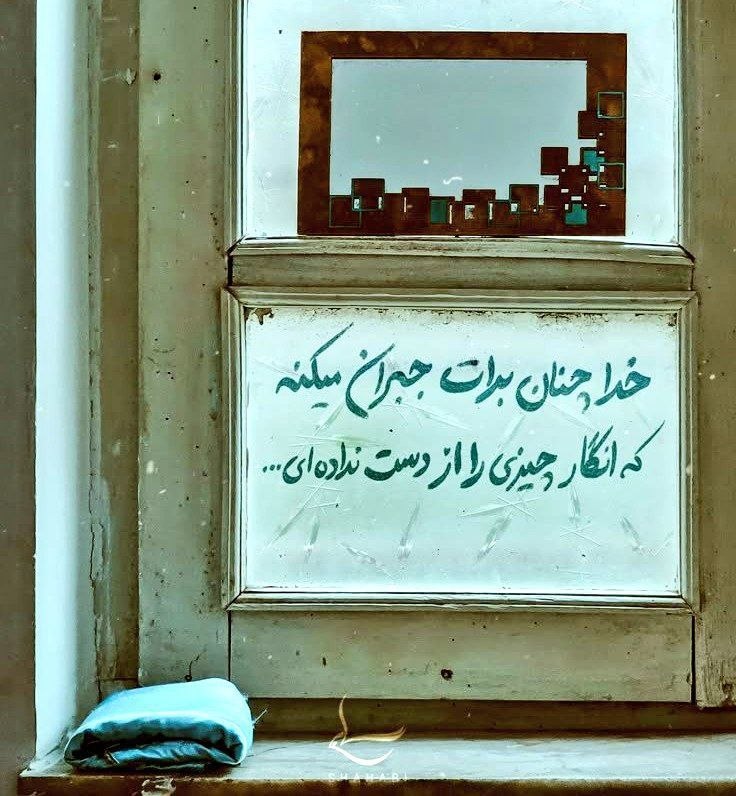 خدا چنان برات جبران میکنه
که انگار چیزی را از دست نداده‌ای...
SHAHABI